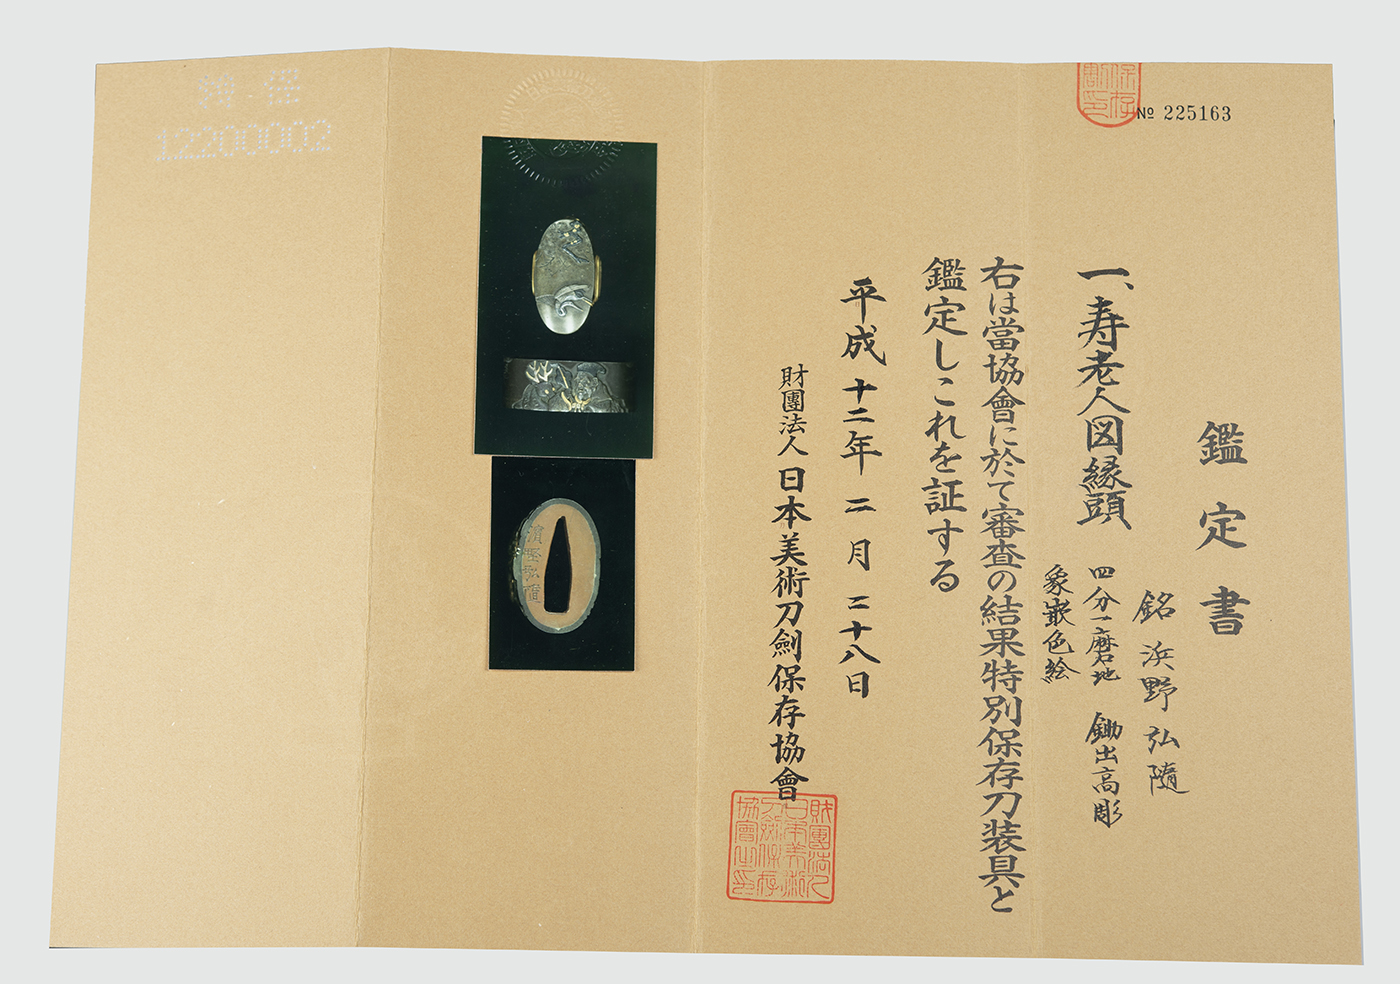 № 225163
鑑定書
銘 浜野弘隨
一、寿老人図縁頭
四分一磨地 鋤出高彫
象嵌色絵
右は當協會に於て審査の結果特別保存刀装具と
鑑定しこれを証する
平成十二年二月二十八日
財團法人日本美術刀劍保存協會
財團法人
日本美術
刀劍保存
協會之印
12200002